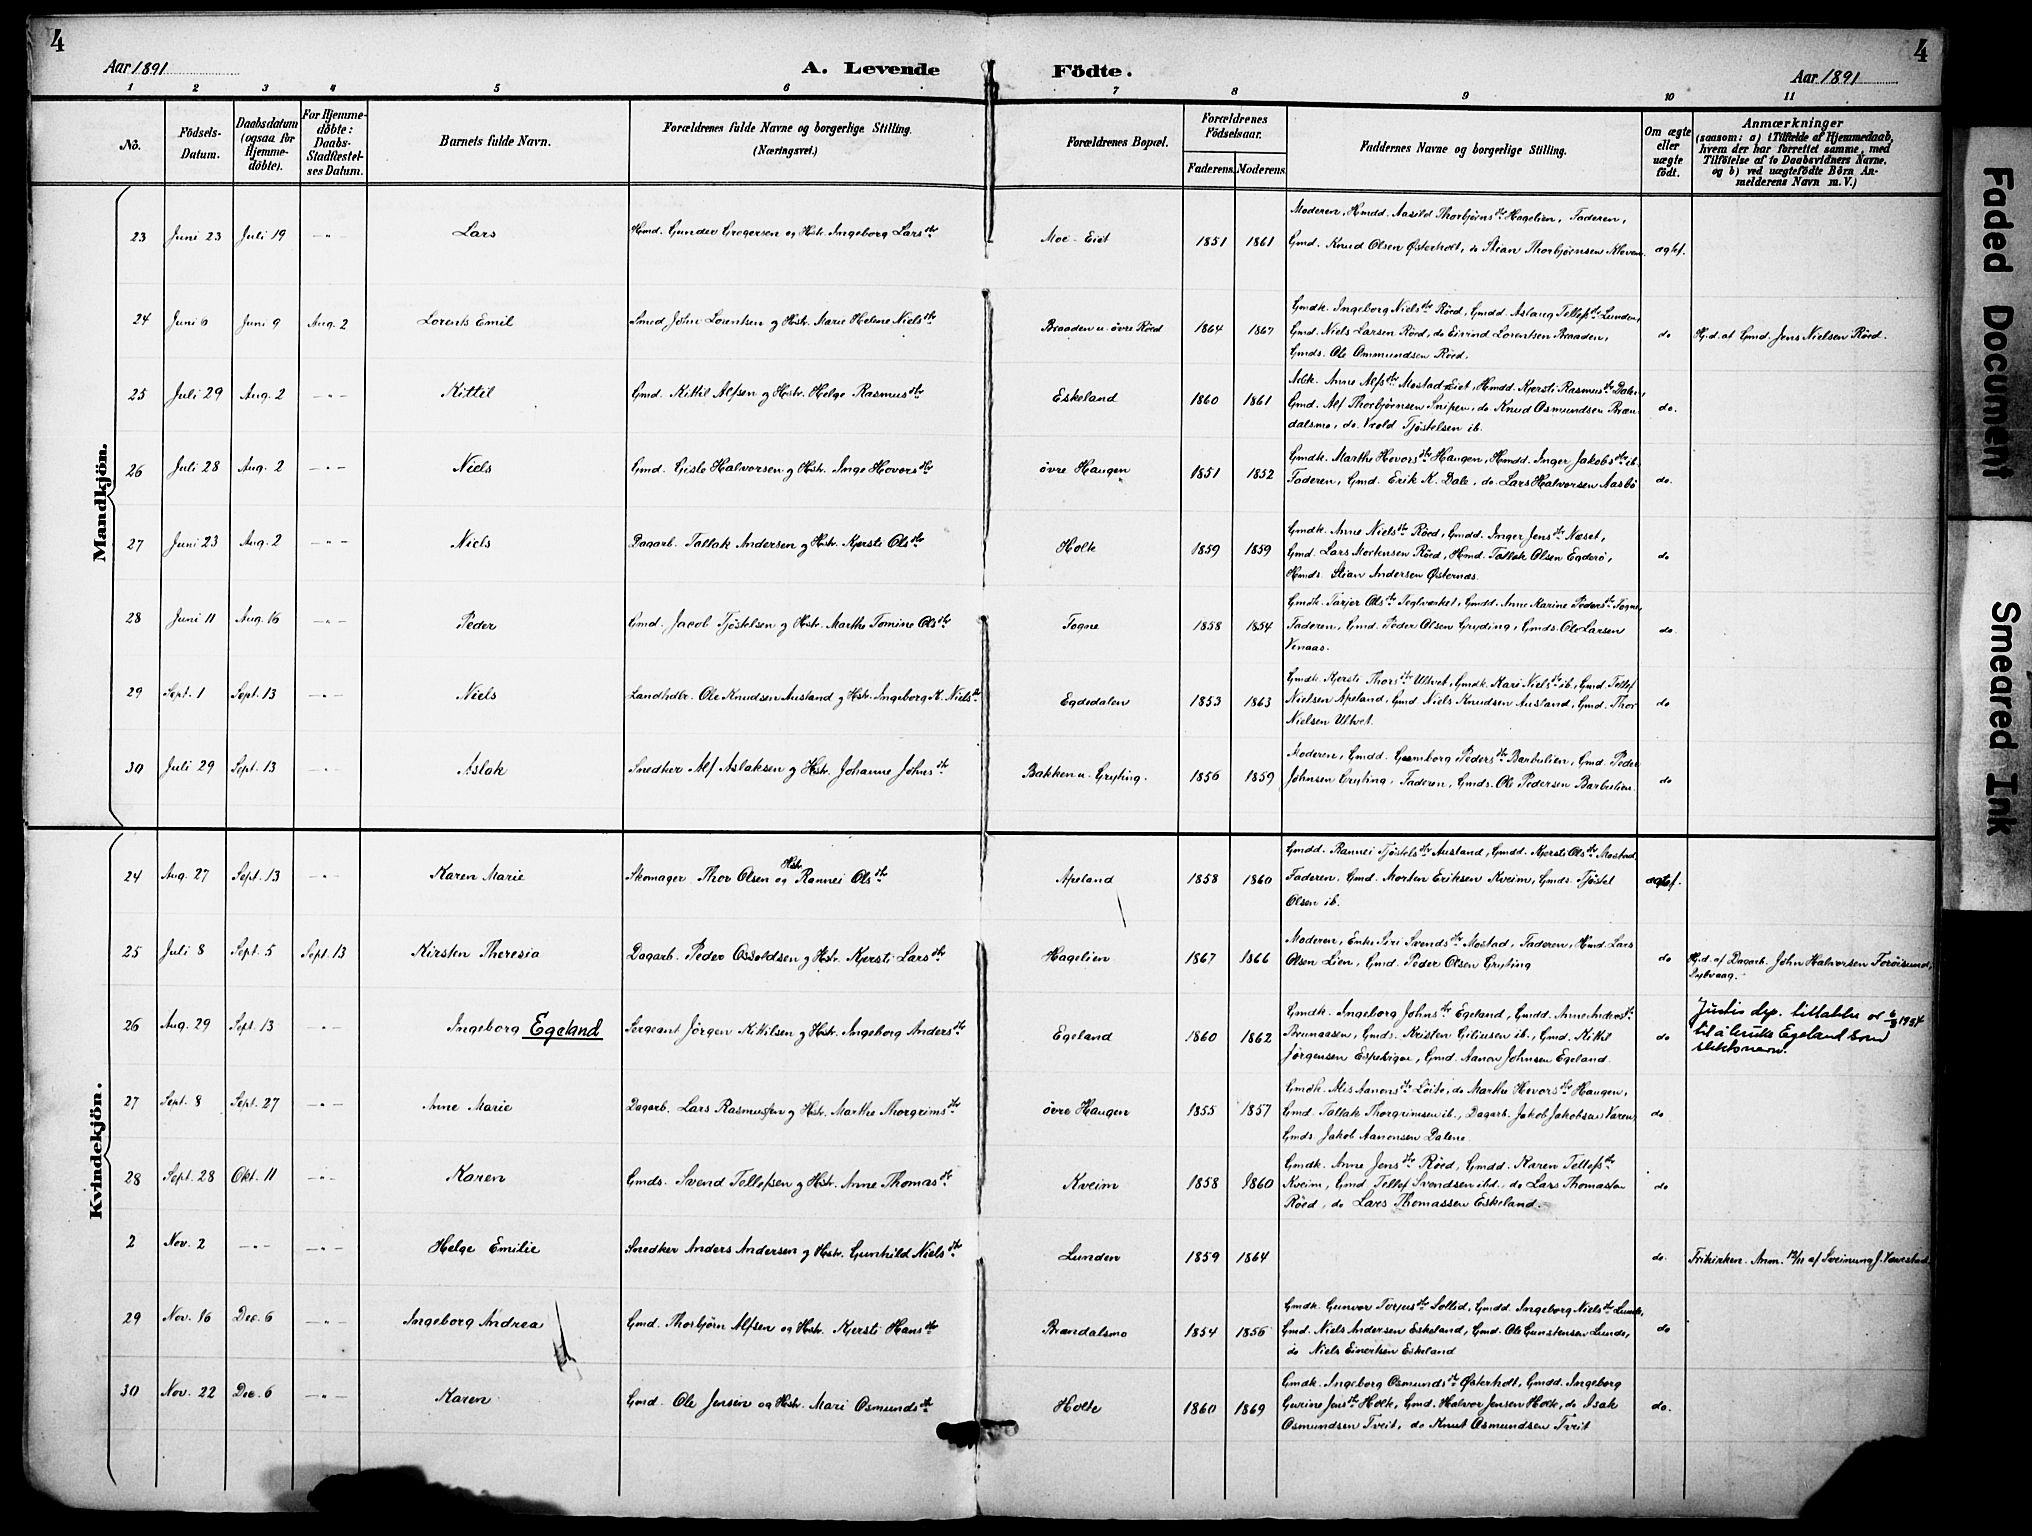 4
4
Aar 1891
A. Levende Födte.
Aar 1891
1 2 3 4 5 6 7 8 9 10 11
No.
Födsels-Datum.
Daabsdatum (ogsaa for Hjemme-döbte).
For Hjemme-döbte: Daabs-Stadfæstel-ses Datum.
Barnets fulde Navn.
Forældrenes fulde Navne og borgerlige Stilling. (Næringsvei.)
Forældrenes Bopæl.
Forældrenes Födselsaar.
Faderens. Moderens.
Faddernes Navne og borgerlige Stilling.
Om ægte eller uægte födt.
Anmærkninger
(saasom: a) i Tilfælde af Hjemmedaab, hvem der har forrettet samme, med Tilföielse af to Daabsvidners Navne, og b) ved uægtefödte Börn An-melderens Navn m. V.)
Mandkjön.
23 Juni 23 Juli 19 -"- Lars Gmd. Gunder Gregersen og Hstr. Ingeborg Larsdtr Moe-Eiet 1851 1861
Moderen, Hmdd. Aasild Thorbjørnsdtr Hagelien, Faderen,
Gmd. Knud Olsen Østerholt, do Stian Thorbjørnsen Kloven. ægtef.
24 Juni 6 Juni 9 Aug. 2 Lorents Emil Smed John Lorentsen og Hstr. Marie Helene Nielsdtr Braaden u. øvre Röed 1864 1867
Gmdk. Ingeborg Nielsdtr Röed, Gmdd. Aslaug Tellefsdtr Lunden,
Gmd. Niels Larsen Röed, do Eivind Lorentsen Braaden,
Gmds. Ole Ommundsen Röed. do Hj.d. af Gmd. Jens Nielsen Röed.
25 Juli 29 Aug. 2 -"- Kittil Gmd. Kittil Alfsen og Hstr. Helge Rasmusdtr Eskeland 1860 1861
Anne Alfsdtr Mostad-Eiet, Hmdd. Kjersti Rasmusdtr Dalen,
Gmd. Alf Thorbjørnsen Snipen, do Knud Osmundsen Bræn-
dalsmo, do Vrold Tjöstelsen ib. do.
26 Juli 28 Aug. 2 -"- Niels Gmd. Gisle Halvorsen og Hstr. Inge Hovorsdtr øvre Haugen 1851 1852
Gmdk. Marthe Hovorsdtr Haugen, Hmdd. Inger Jakobsdtr ib.
Faderen, Gmd. Erik K. Dale, do. Lars Halvorsen Aasbö do.
27 Juni 23 Aug. 2 -"- Niels Dagarb. Tallak Andersen og Hstr. Kjersti Olsdtr Holte 1859 1859
Gmdk. Anne Nielsdtr Röed, Gmdd. Inger Jensdtr Næset,
Gmd. Lars Mortensen Röed, Hmd. Tallak Olsen Egderö,
Hmds. Stian Andersen Østernæs. do
28 Juni 11 Aug. 16 -"- Peder Gmd. Jacob Tjöstelsen og Hstr. Marthe Tomine Olsdtr Togne 1858 1854
Gmdk. Tarjer Olsdtr Teglværket, Gmdd. Anne Karine Pedersdtr Togne,
Faderen, Gmd. Peder Olsen Gryting, Gmds. Ole Larsen
Venaas. do.
29 Sept. 1 Sept. 13 -"- Niels Landhdlr. Ole Knudsen Ausland og Hstr. Ingeborg K. Nielsdtr Egdedalen 1853 1863
Gmdk. Kjersti Thorsdtr Ultvet, Gmdk. Kari Nielsdtr ib., Gmd. Tellef
Nielsen Apeland, Gmd Niels Knudsen Ausland, Gmd. Thor
Nielsen Ultvet. do
30 Juli 29 Sept. 13 -"- Aslak Snedker Alf Aslaksen og Hstr. Johanne Johnsdtr Bakken u. Gryting. 1856 1859
Moderen, Gmdd. Gunborg Pedersdtr Barbulien, Gmd. Peder
Johnsen Gryting, Faderen, Gmds. Ole Pedersen Barbulien. do
Kvindekjön.
24 Aug. 27 Sept. 13 -"- Karen Marie Skomager Thor Olsen og Hstr. Rannei Olsdtr Apeland 1858 1860
Gmdd. Rannei Tjöstelsdtr Ausland, Gmdd. Kjersti Olsdtr Mostad,
Faderen, Gmd. Morten Eriksen Kveim, Gmds. Tjöstel
Olsen ib. ægtef.
25 Juli 8 Sept. 5 Sept. 13 Kirsten Theresia Dagarb. Peder Osvoldsen og Hstr. Kjersti Larsdtr Hagelien 1867 1866
Moderen, Enke Siri Svendsdtr Mostad, Faderen, Hmd. Lars
Olsen Lien, Gmd. Peder Olsen Gryting do Hj.d. af Dagarb. John Halvorsen Toröisund,
Dybvaag.
26 Aug. 29 Sept. 13 Ingeborg Egeland Sergeant Jörgen Kittilsen og Hstr. Ingeborg Andersdtr Egeland 1860 1862
Gmdk. Ingeborg Johnsdtr Egeland, Gmdd. Anne Andersdtr
Brunaasen, Gmds. Kristen Ciliusen ib., Gmd. Kittil
Jörgensen Espekigen, Gmd. Aanon Johnsen Egeland. do
Justis dep. tillatelse av 6/3 1934
til å bruke Egeland som
slektsnavn.
27 Sept. 8 Sept. 27 -"- Anne Marie Dagarb. Lars Rasmussen og Hstr. Marthe Thorgrimsdtr øvre Haugen 1855 1857
Gmdk. Alis Aanonsdtr Löite, do Marthe Hovorsdtr Haugen,
Gmd. Tallak Thorgrimsen ib., Dagarb. Jakob Jakobsen Varen,
Gmds. Jakob Aanonsen Dalene. do
28 Sept. 28 Okt. 11 -"- Karen Gmds. Svend Tellefsen og Hstr. Anne Thomasdtr Kveim 1858 1860
Gmdk. Anne Jensdtr Röed, Gmdd. Karen Tellefsdtr
Kveim, Gmd. Tellef Svendsen ibd., do Lars Thomassen
Röed, do Lars Thomassen Eskeland. do
2 Nov. 2 -"- -"- Helge Emilie Snedker Anders Andersen og Hstr. Gunhild Nielsdtr Lunden 1859 1864 do. Frikirken. Anm. 12/11 af Sveinung J. Vævestad.
29 Nov. 16 Dec. 6 -"- Ingeborg Andrea Gmd. Thorbjörn Alfsen og Hstr. Kjersti Hansdtr Brændalsmo 1854 1856
Gmdk. Gunvor Torjusdtr Sollid, Gmdd. Ingeborg Nielsdtr Lunde,
Gmd. Niels Andersen Eskeland, Gmd. Ole Gunstensen Lunde,
do Niels Einertsen Eskeland do
30 Nov. 22 Dec. 6 -"- Karen Gmd. Ole Jensen og Hstr. Mari Osmundsdtr Holte 1860 1869
Gmdk. Ingeborg Osmundsdtr Østerholt, Gmdd. Ingeborg
Gurine Jensdtr Holte, Gmd. Halvor Jensen Holte, do Isak
Osmundsen Tveit, do Knut Osmundsen Tveit do.
Faded Document
Smeared Ink